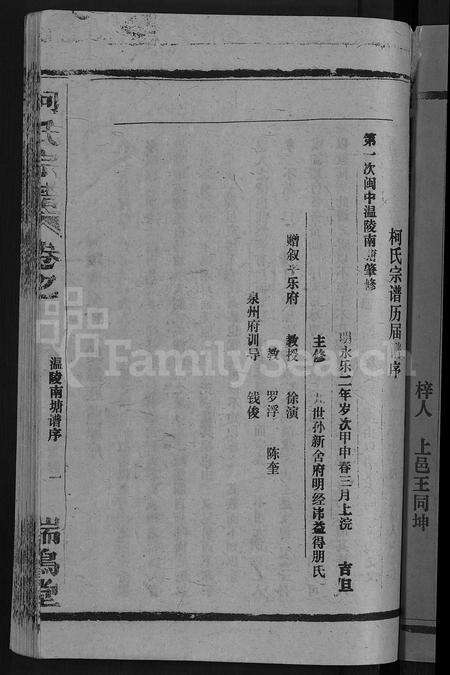 柯氏宗谱历届谱序
第一次闽中温陵南塘肇修
明永乐二年岁次甲申春三月上浣 吉旦
主修 世孙新舍府明经讳益得朋氏
赠叙 乐府 教授 徐演
教 罗浮 陈奎
泉州府训导 钱俊
柯氏宗谱 卷之
温陵南塘谱序
一
瑞鹊堂
梓人 上邑王同坤
FamilySearch